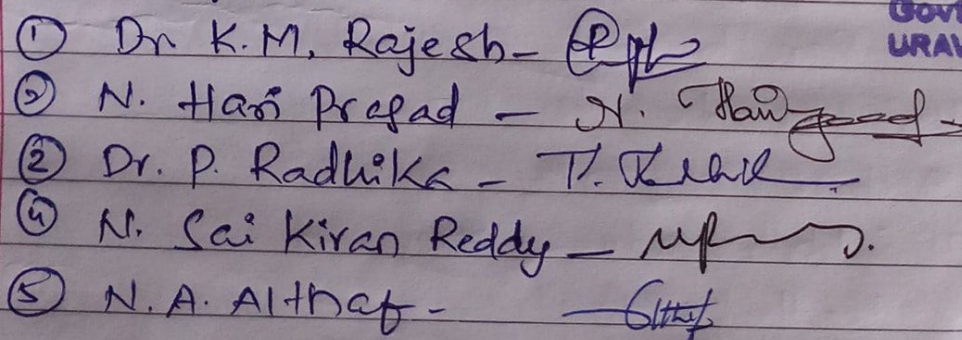 Govt
URAV
① Dr K.M. Rajesh -
③ N. Hari Prasad - N. Hari
② Dr. P. Radhika -
④ N. Sai Kiran Reddy -
⑤ N.A. Althaf - Althaf